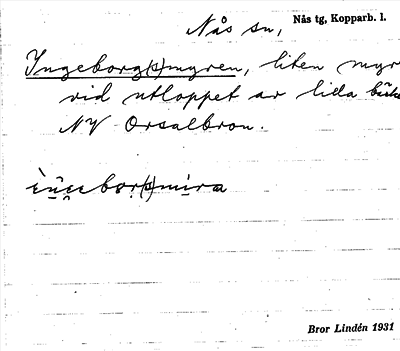 Nås sn,
Nås tg, Kopparb. l.
Ingeborg(s)myren, liten myr
vid utloppet av lilla
NV Orsalbron.
Bror Lindén 1931